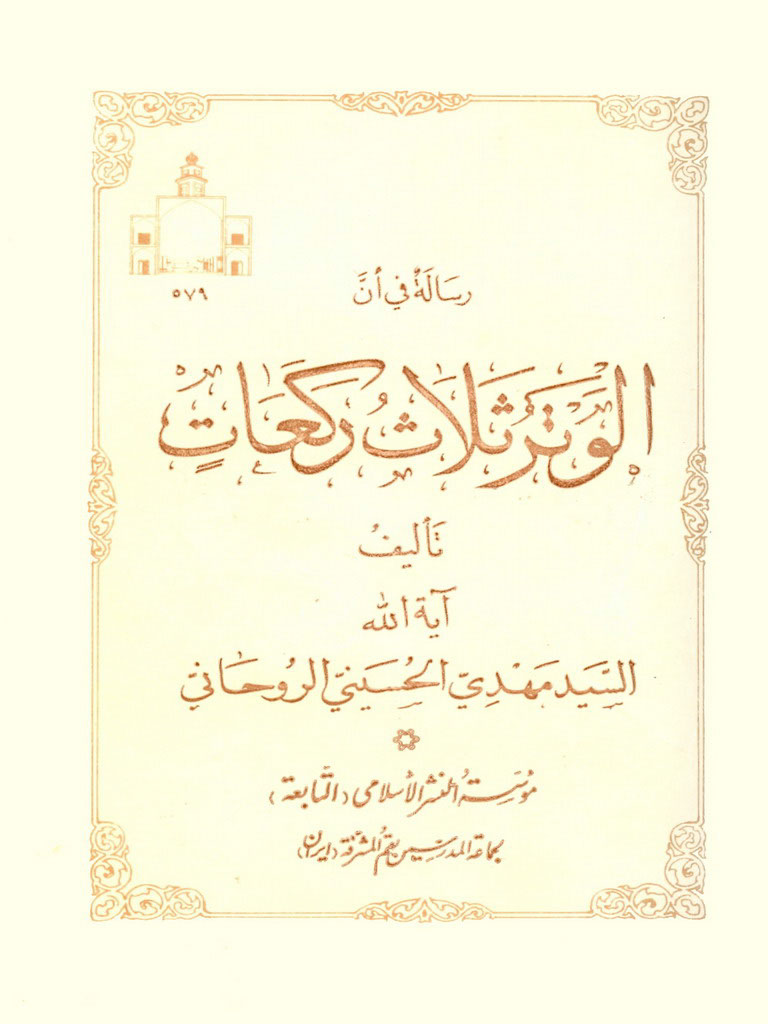 ٥٧٩
رسَالَةٌ في أنَّ
الوَتَرَ ثَلاثُ رَكَعَاتٍ
تَأليفُ
آية الله
السَّيِّد مَهْدِيّ الحُسَيْنيّ الرُّوحَانيّ
مؤسَّسة النشر الإسلامي (التابعة)
لجماعة المدرسين بقم المشرَّفة (ايران)